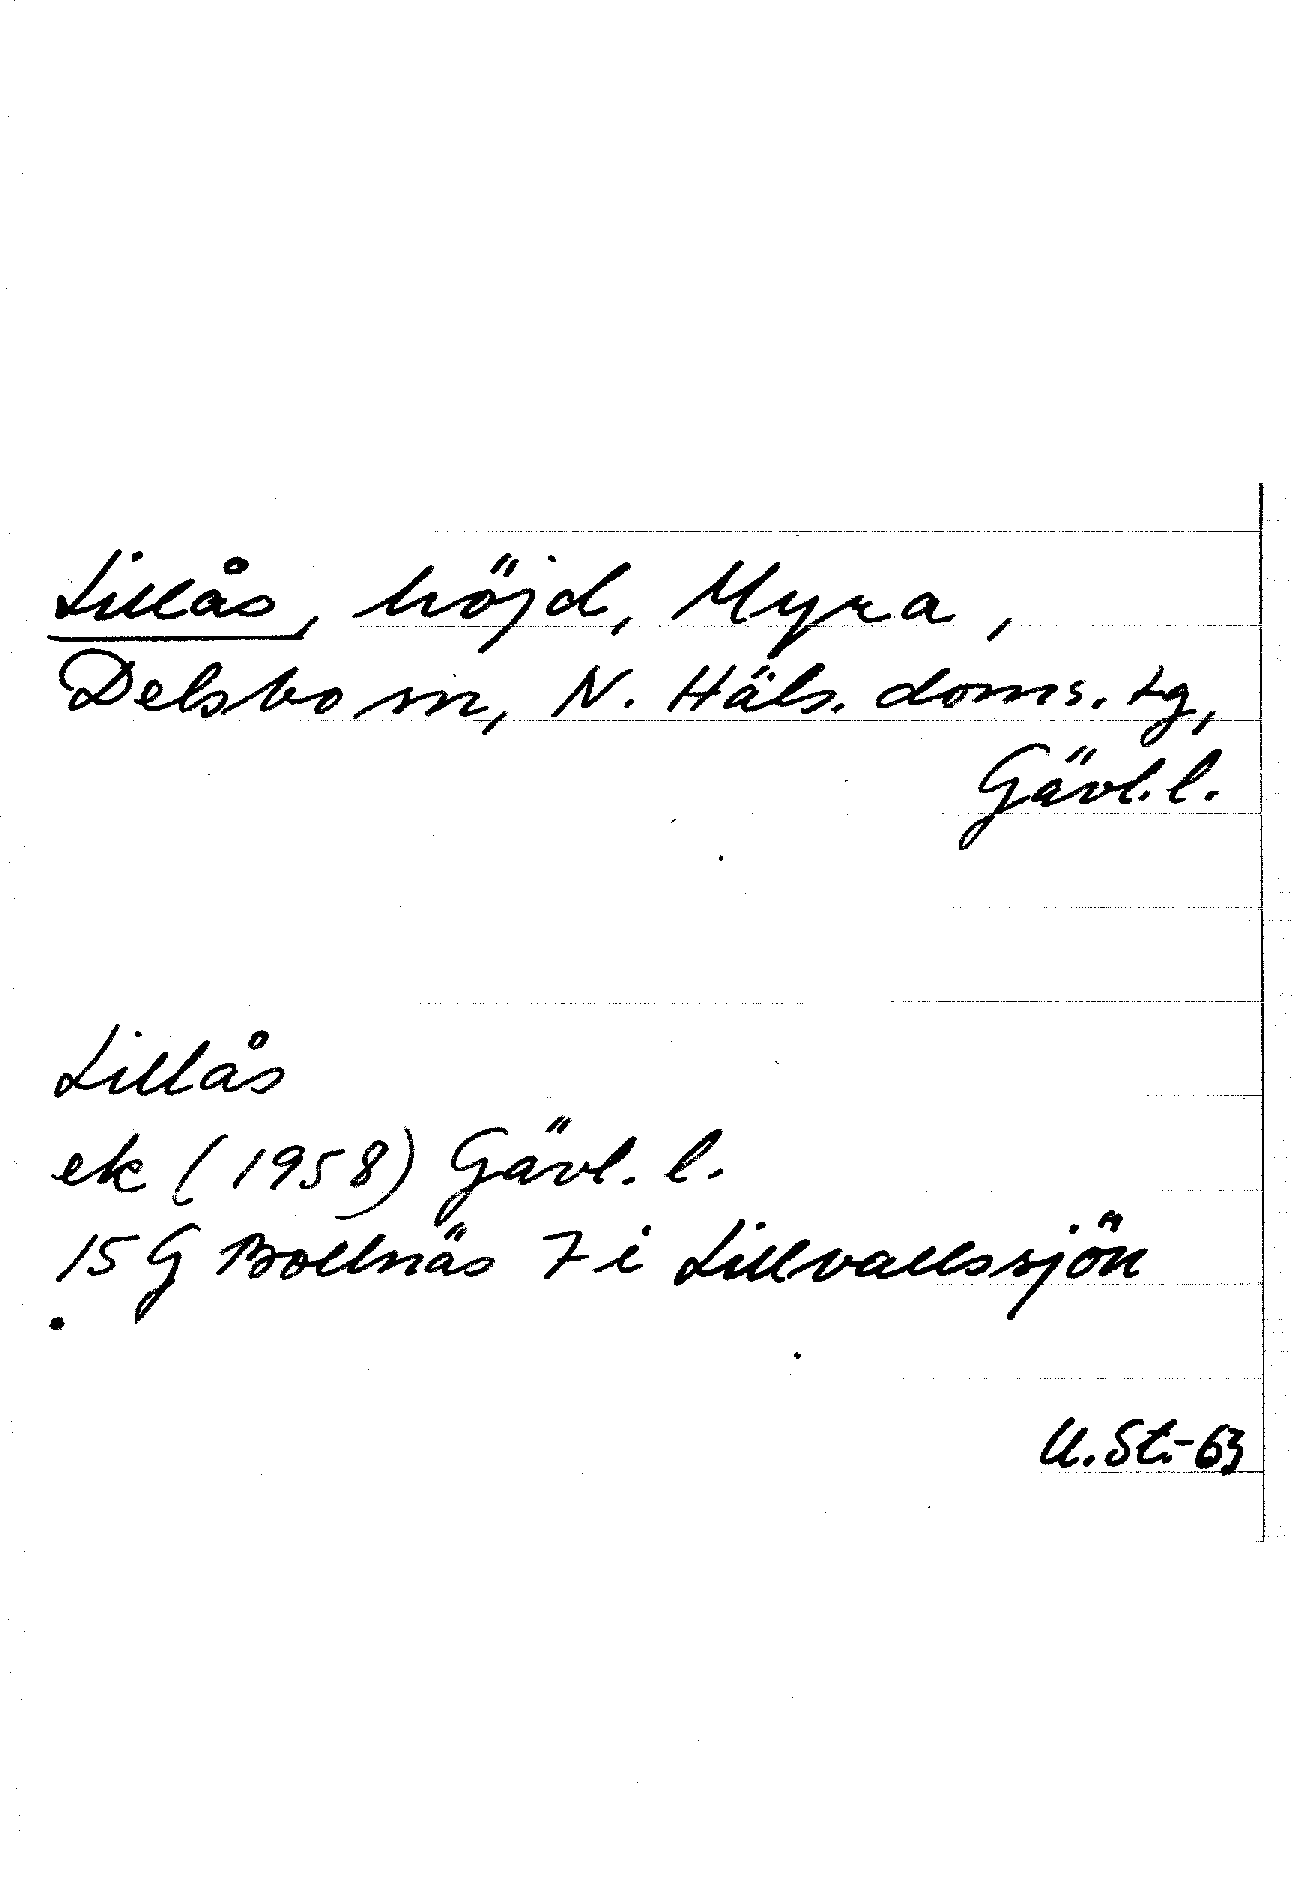 Lillås, höjd, Myra,
Delsbo sn, N. Häls. doms. tg,
Gävl. l.
Lillås
ek (1958) Gävl. l.
15 G Bollnäs 7 i Lillvallssjön
U. St.-63